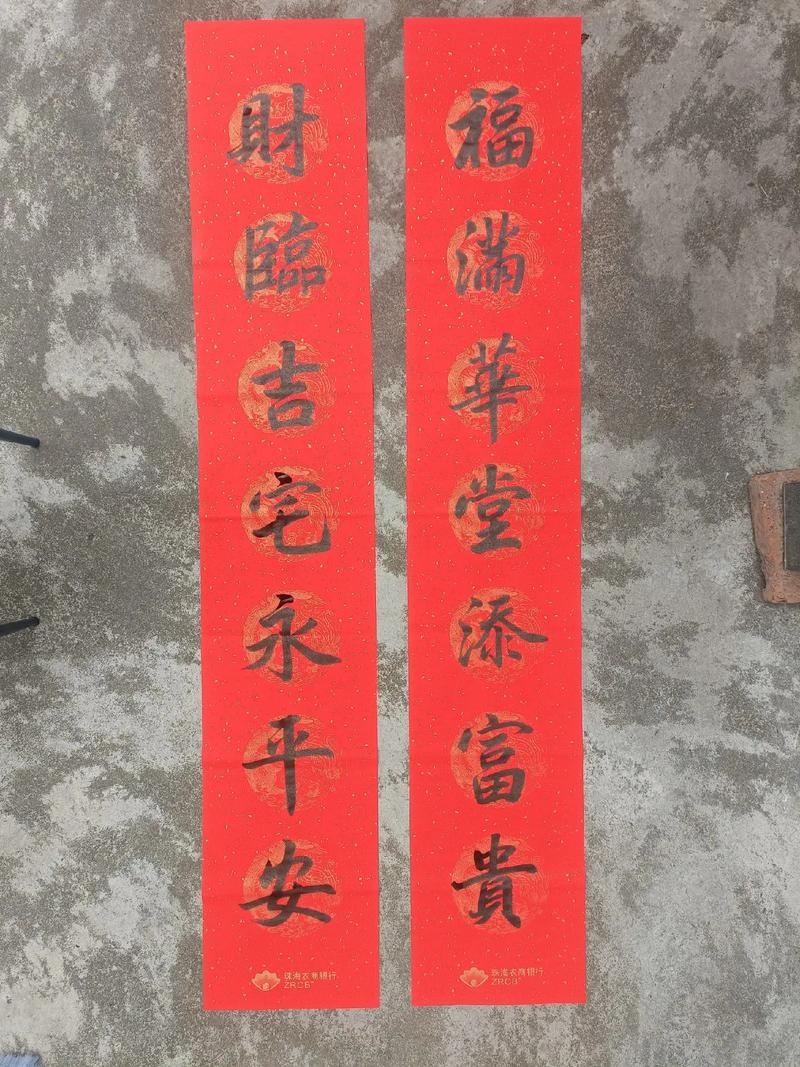 福滿華堂添富貴
財臨吉宅永平安
珠海农商银行
ZRCB
珠海农商银行
ZRCB